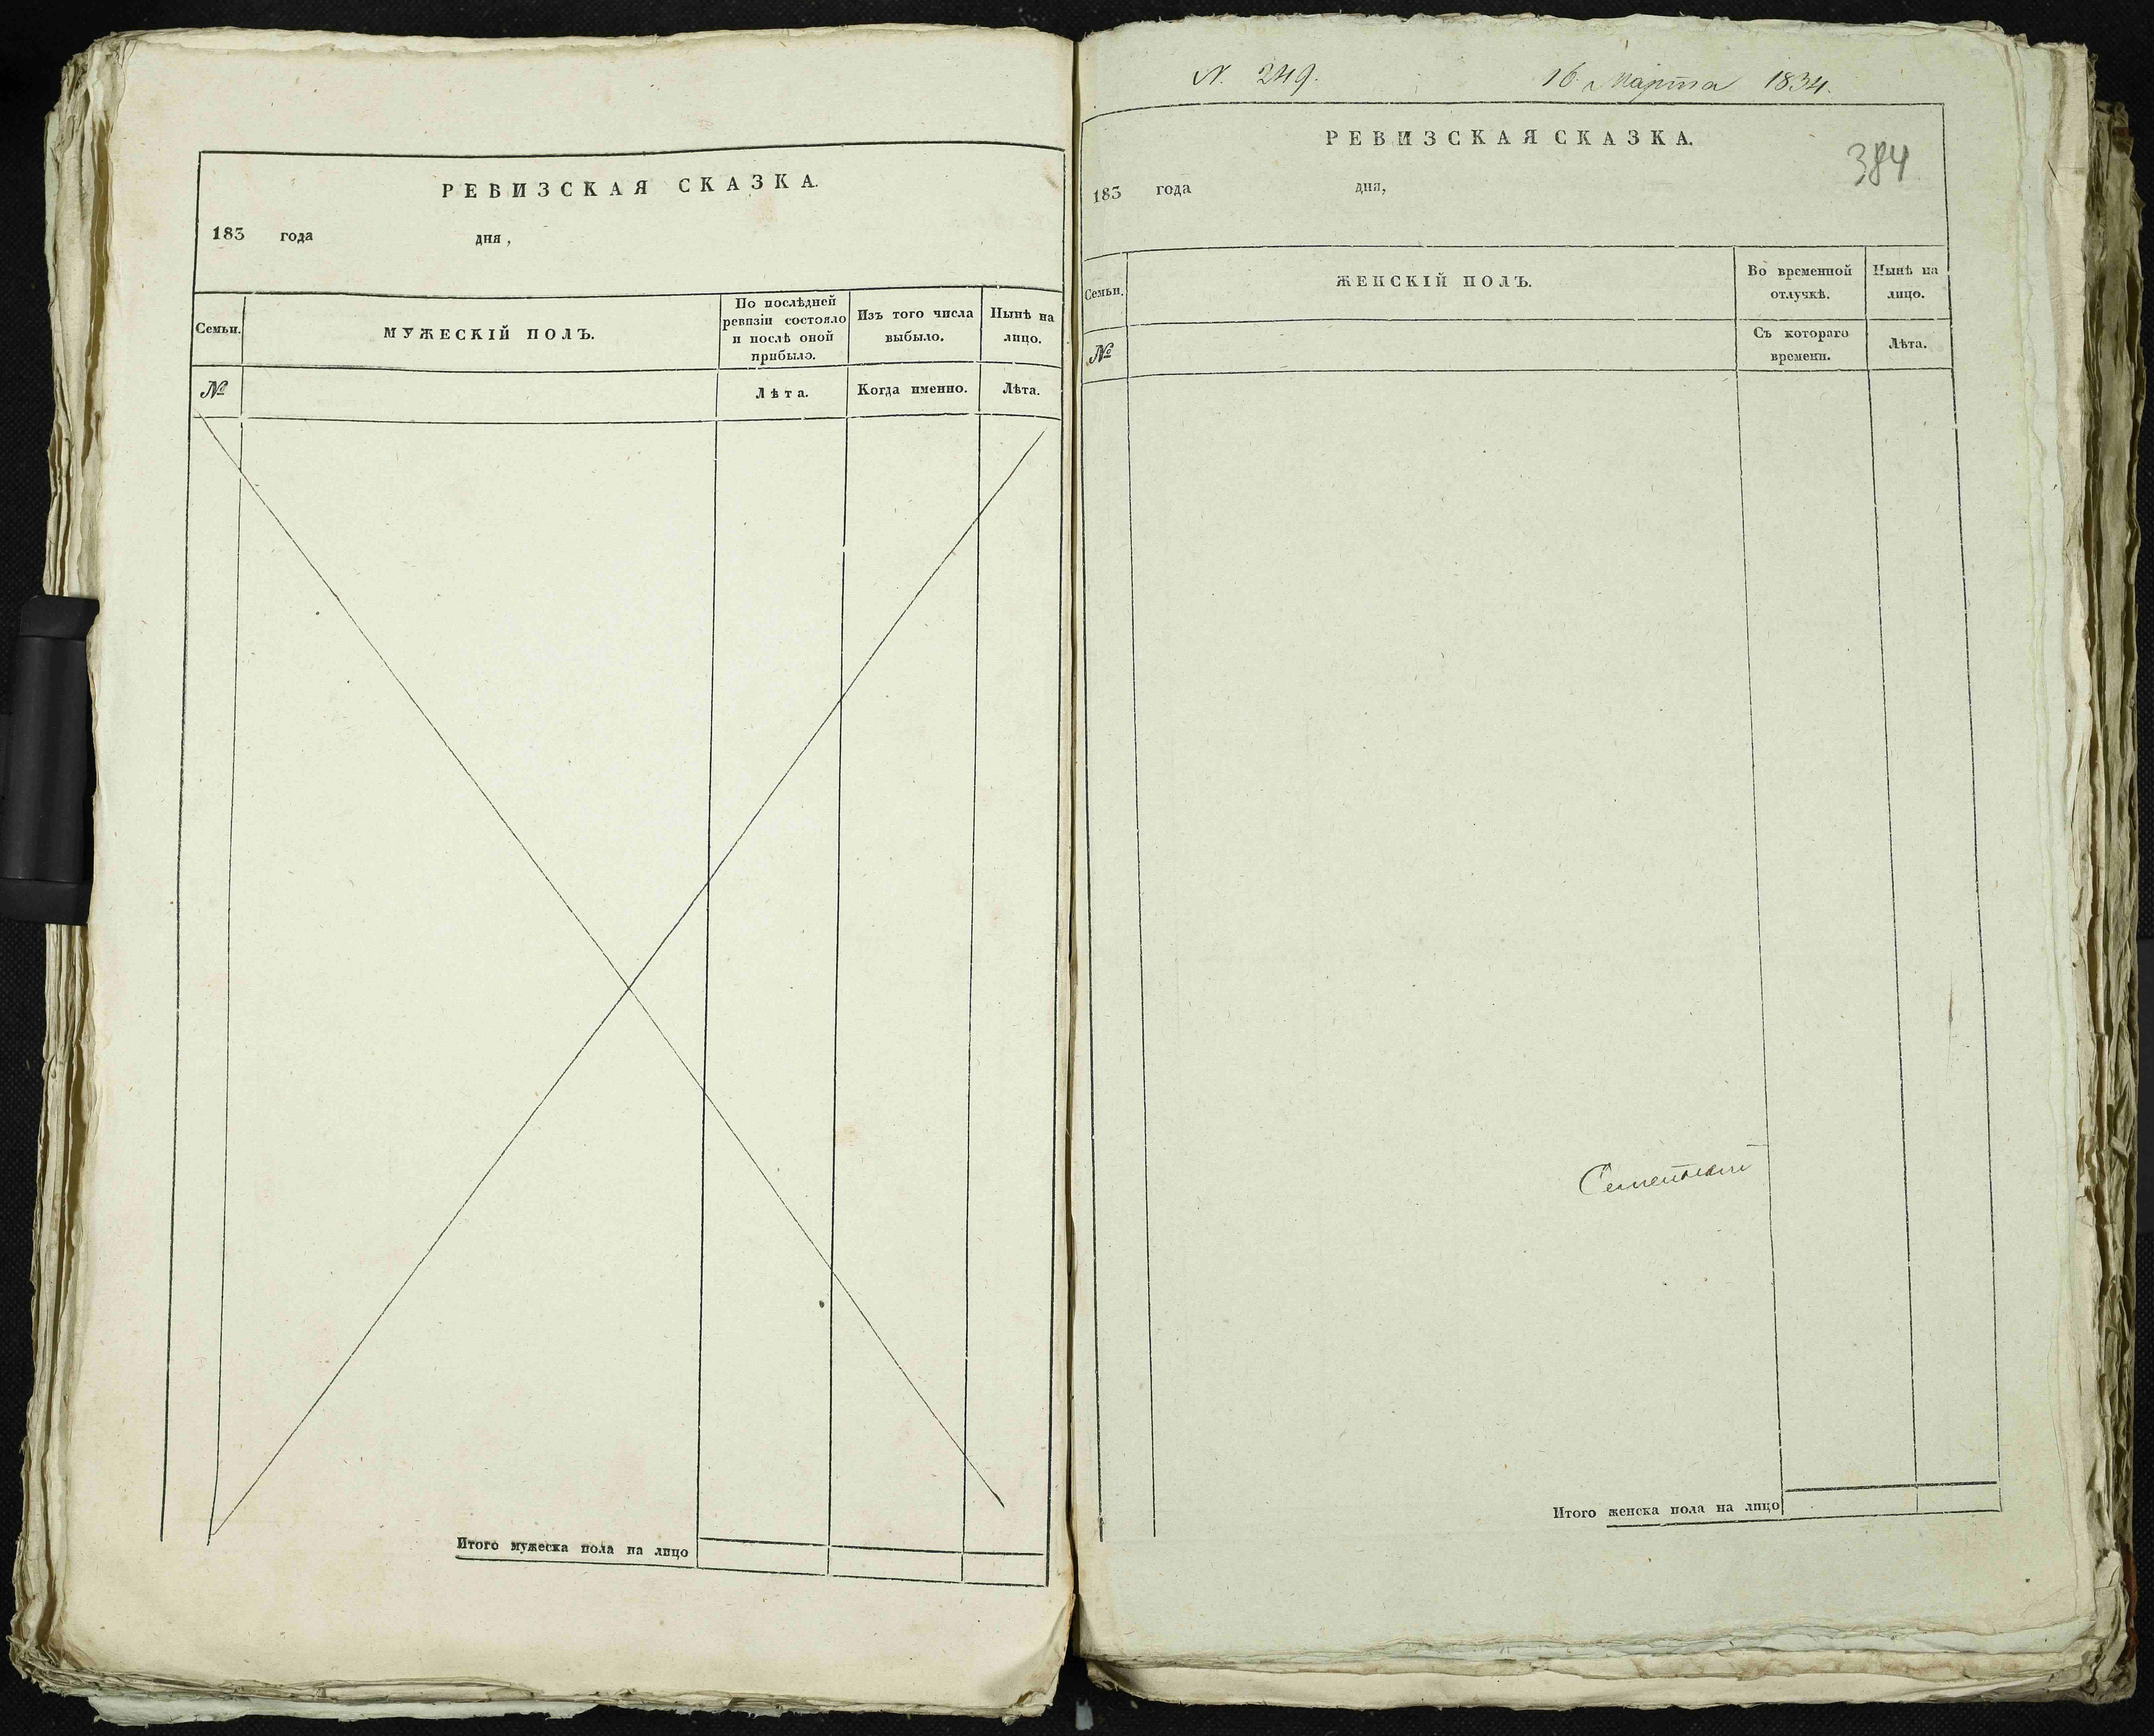 РЕВИЗСКАЯ СКАЗКА.
183 года дня,
Семьи.
МУЖЕСКІЙ ПОЛЪ.
По послѣдней
ревизіи состояло
и послѣ оной
прибыло.
Изъ того числа
выбыло.
Нынѣ на
лицо.
№
Лѣта.
Когда именно.
Лѣта.
Итого мужеска пола на лицо
N. 249. 16 Марта 1834.
РЕВИЗСКАЯ СКАЗКА.
384
183 года дня,
Семьи.
ЖЕНСКІЙ ПОЛЪ.
Во временной
отлучкѣ.
Нынѣ на
лицо.
№
Съ котораго
времени.
Лѣта.
Итого женска пола на лицо